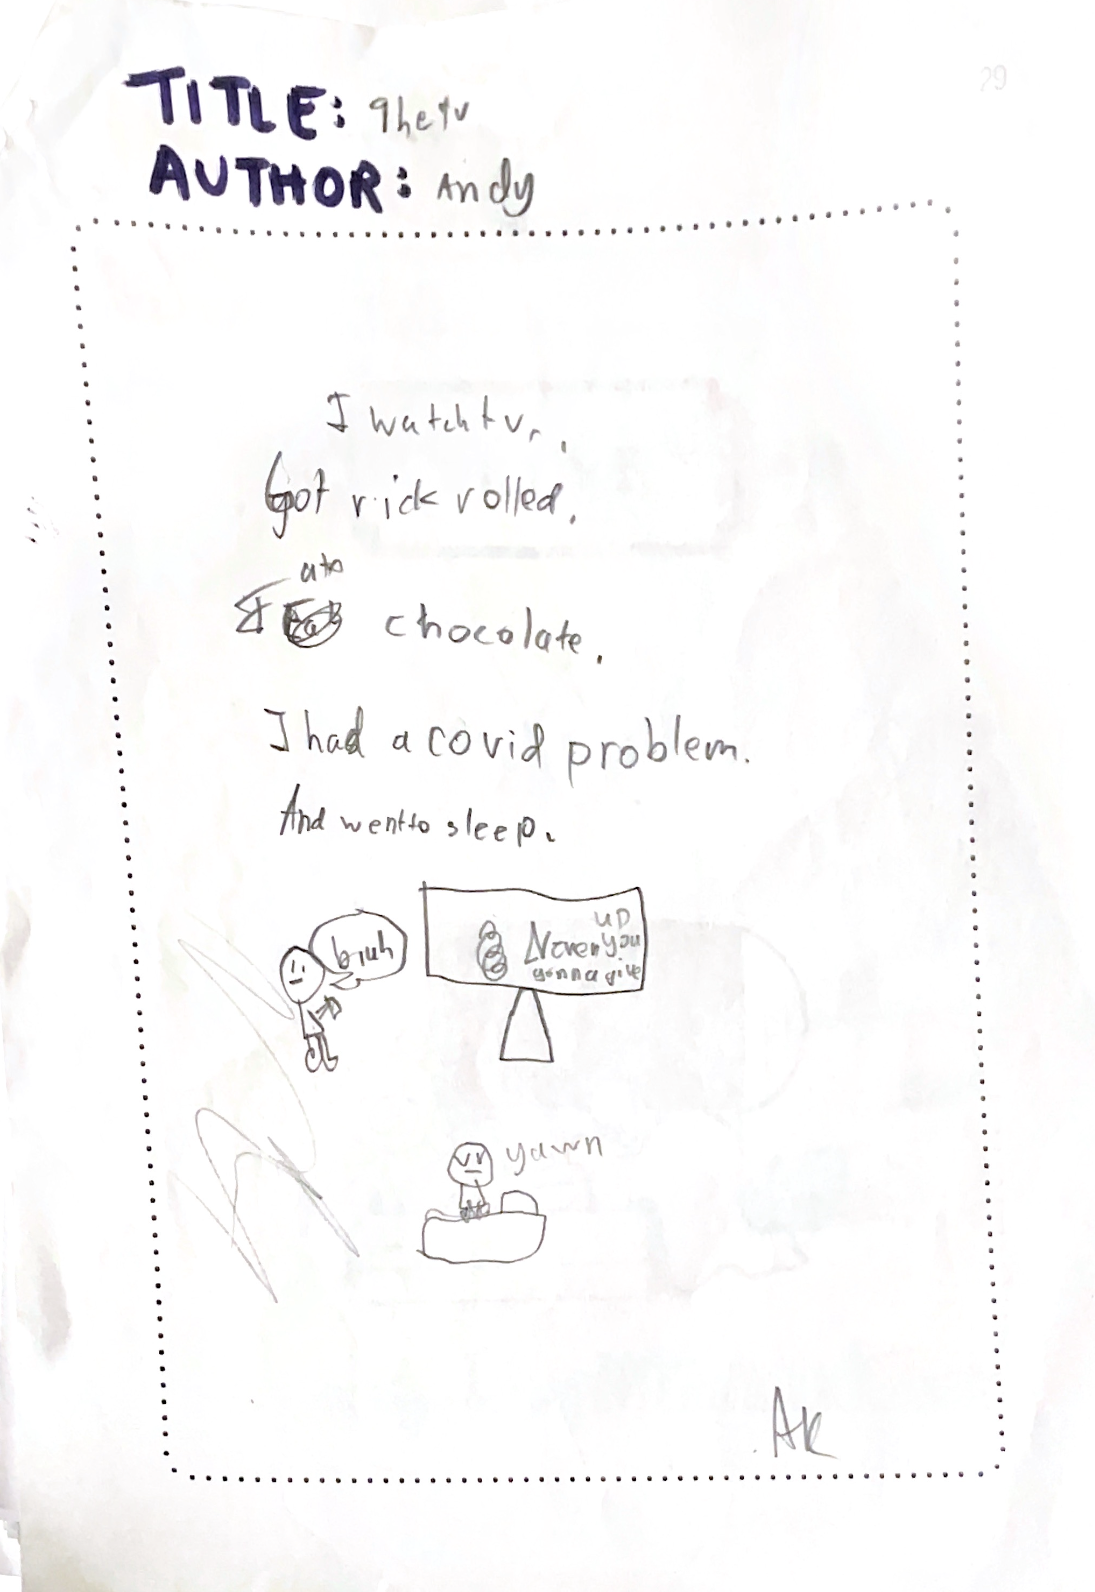 TITLE: The tv
AUTHOR: Andy
I watch tv.
Got rick rolled.
ate
I chocolate.
I had a covid problem.
And went to sleep.
bruh
up
Never you
gonna give
yawn
AK
29